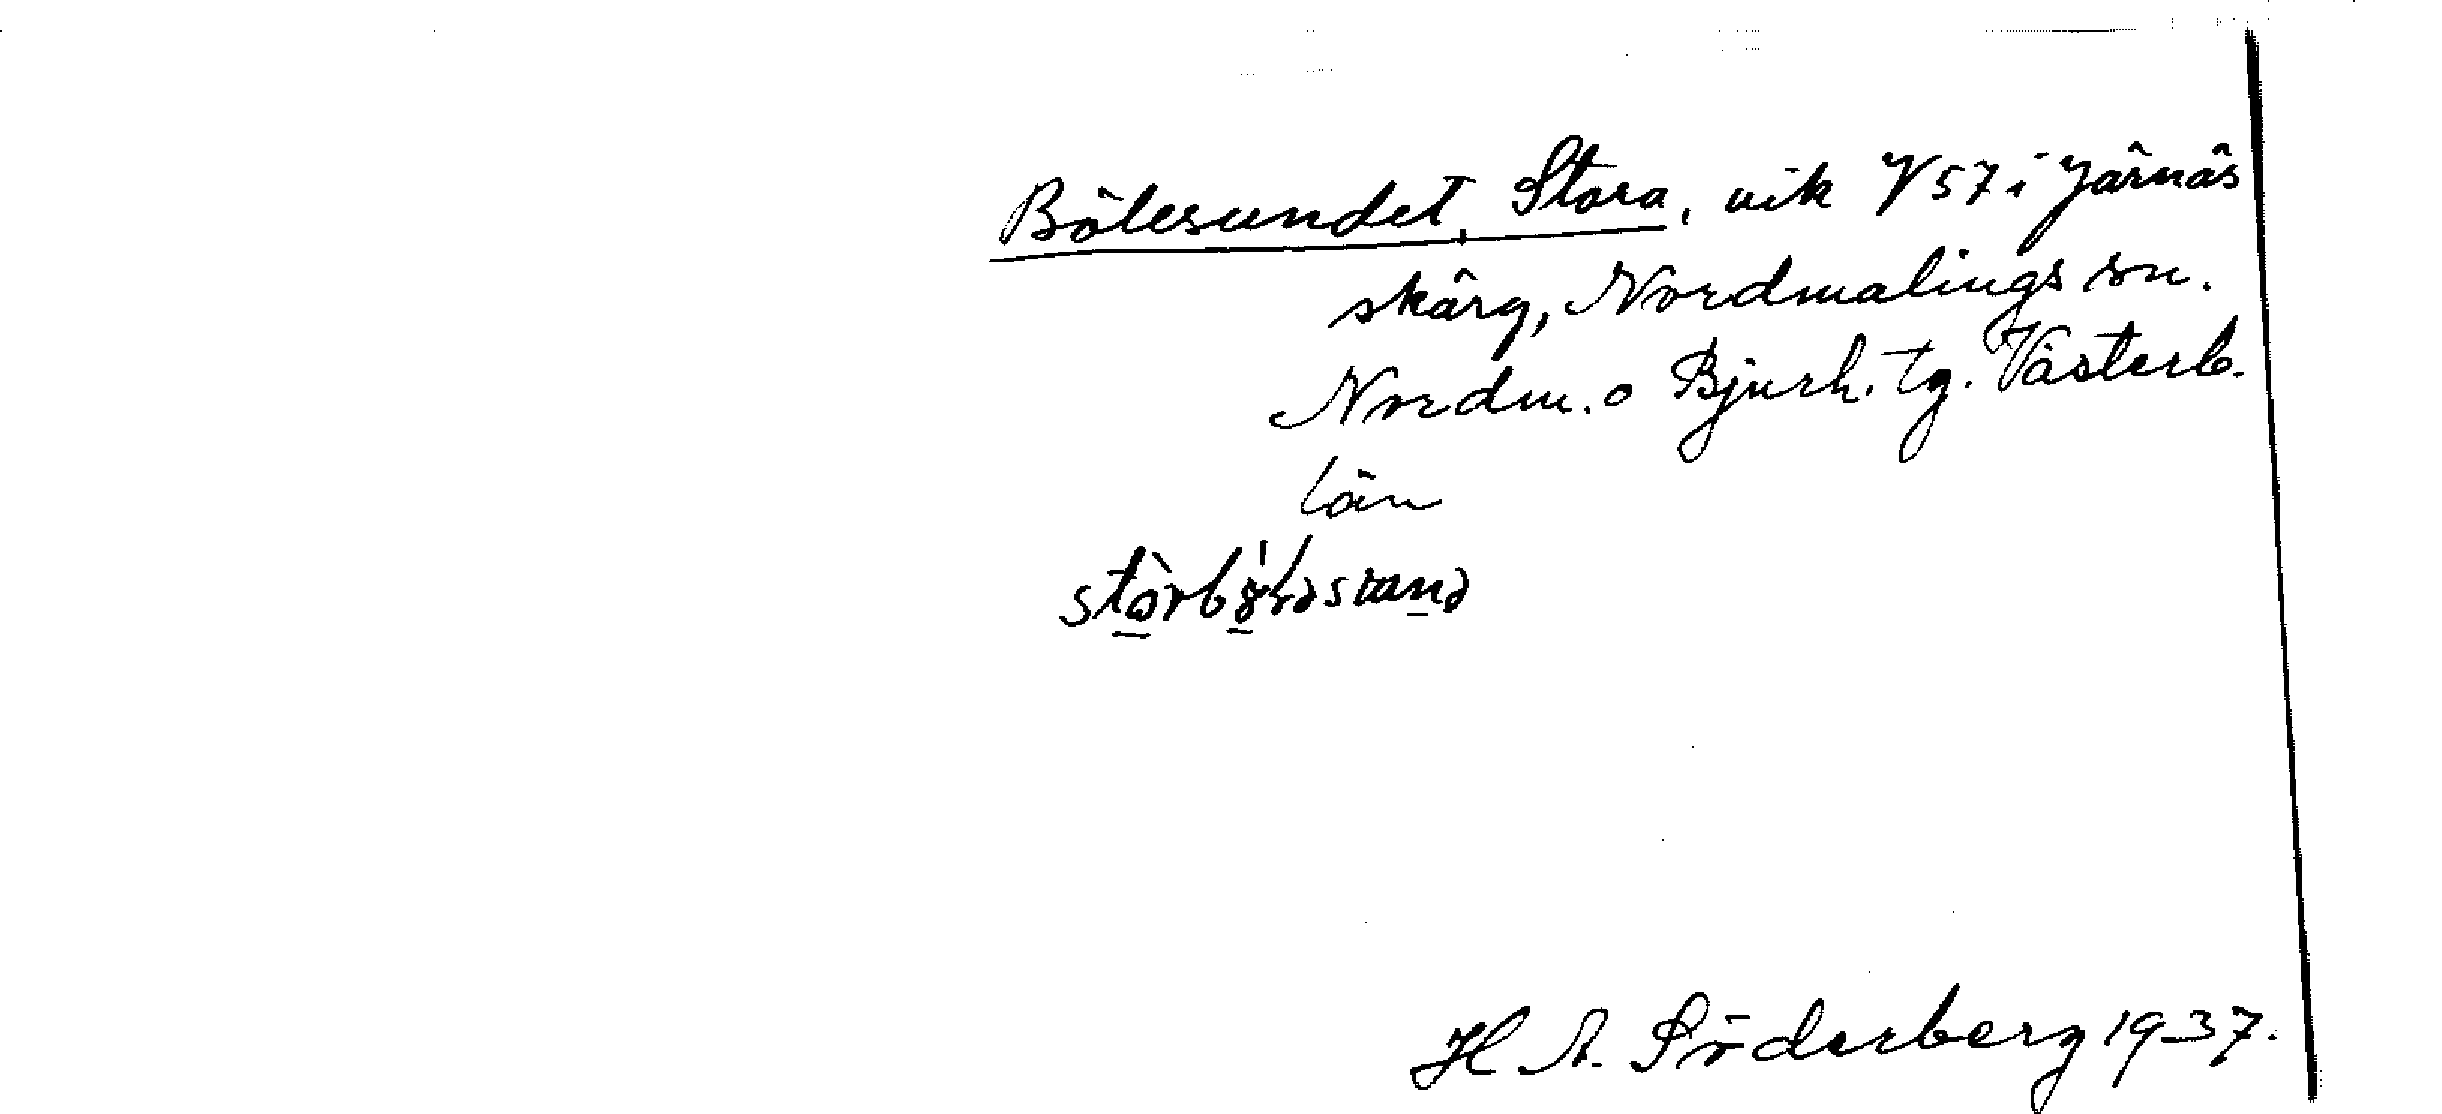 Bölesundet, Stora, vik V 57 i Järnäs
skärg, Nordmalings sn.
Nordm. o Bjurh. tg. Västerb.
län
H A. Söderberg 1937.